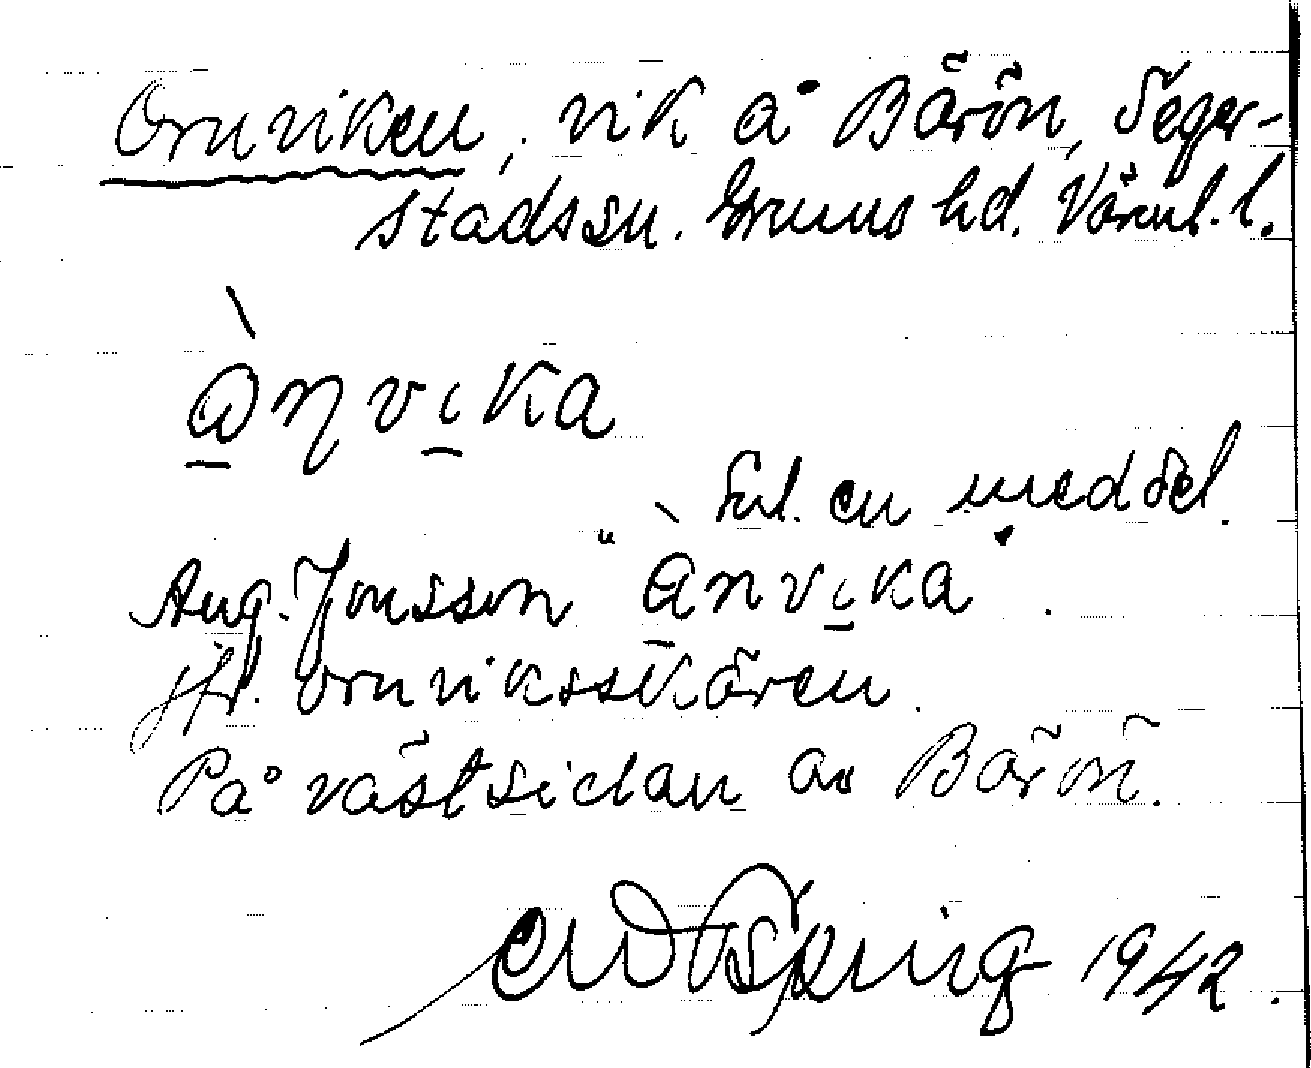 Ornviken, vik å Bärön, Seger-
stads sn. Grums hd. Värml. l.
ànvika
Enl. en meddel.
Aug. Jonsson "ànvika".
jfr. Ornviksskären.
På västsidan av Bärön.
Spring 1942.